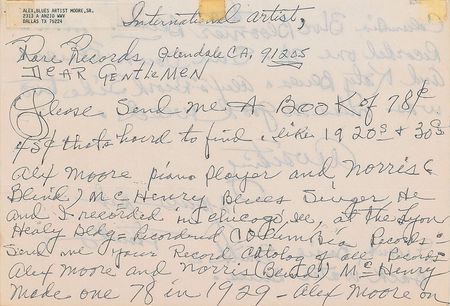 ALEX, BLUES ARTIST MOORE, SR.
2313 A ANZIO WAY
DALLAS TX 75224
International Artist,
Rare Records, Glendale CA, 91205
DEAR GENTLEMEN
Please Send me A BOOK of 78s
45s that's hard to find, like 1920s & 30s
Alex Moore piano player and Norris (
Blind) Mc Henry Blues Singer He
and I recorded in Chicago Ill, at the Lyon
Healy Bldg = Recorded COlumBia Records =
Send me your Record Catalog of all Records
Alex Moore and Norris (Blind) Mc Henry
Made one 78 in 1929 - Alex Moore on